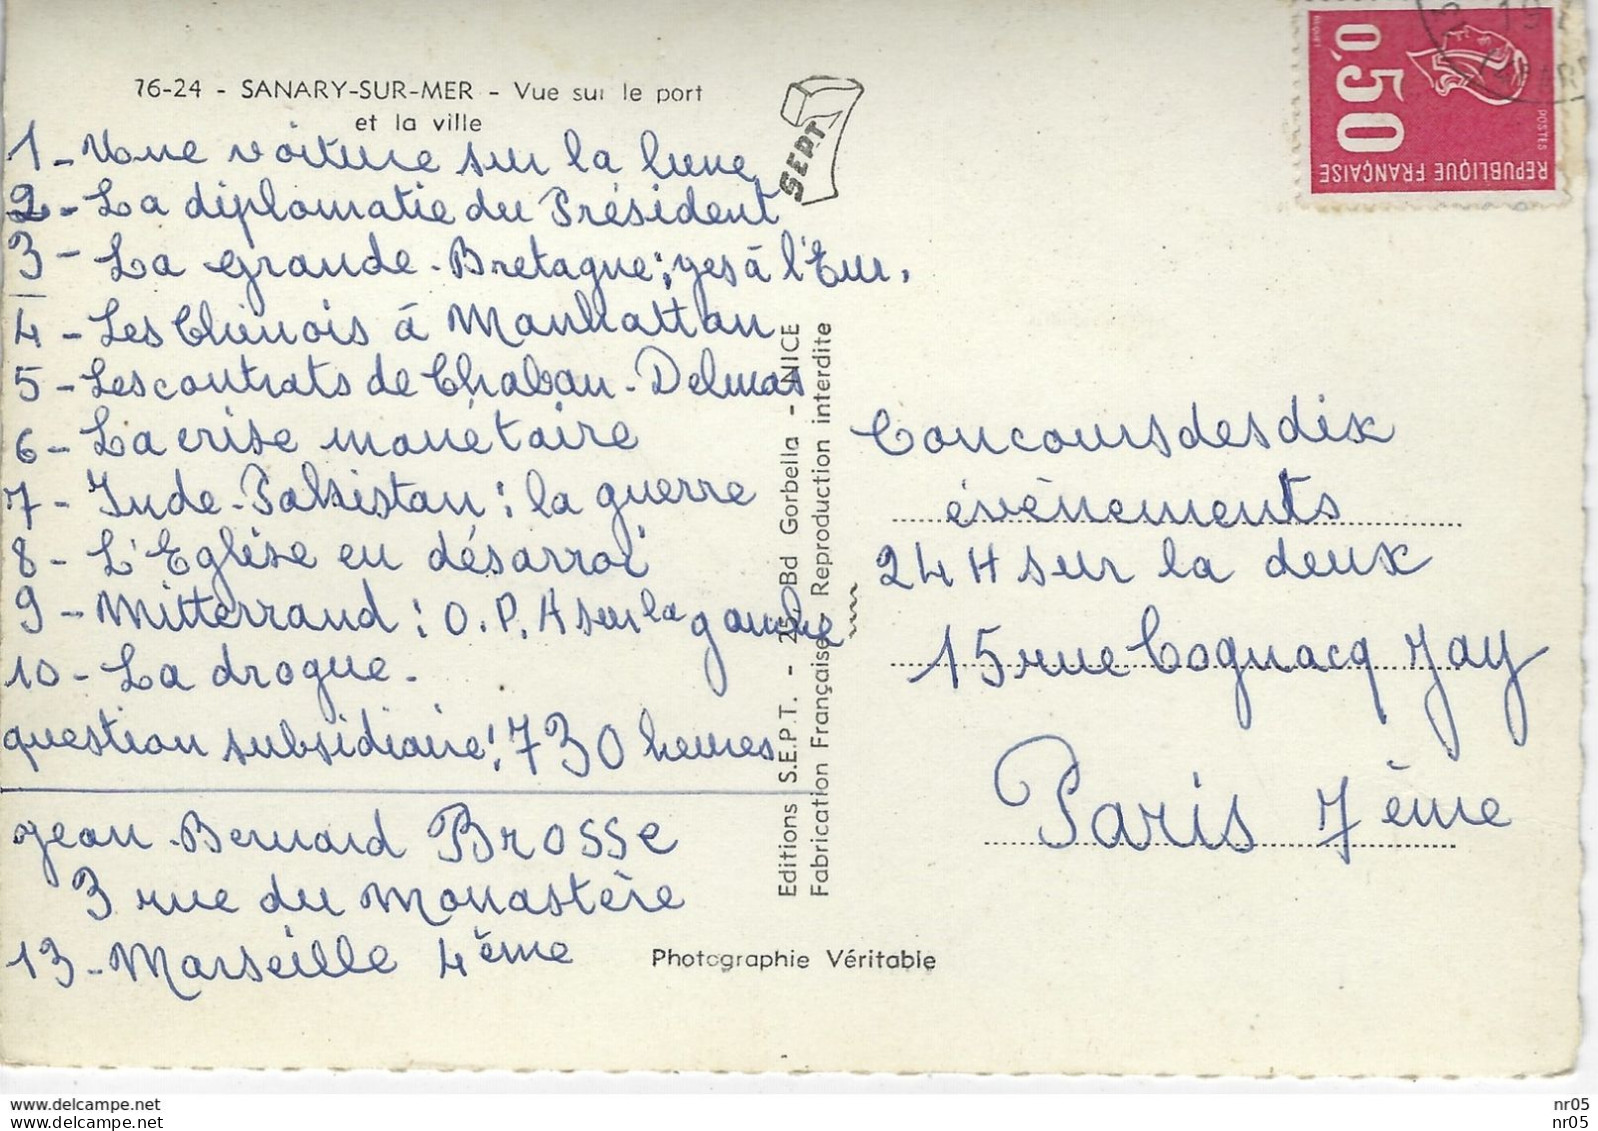 76-24 - SANARY-SUR-MER - Vue sur le port
et la ville
SEPT
1 - Une voiture sur la lune
2 - La diplomatie du Président
3 - La grande-Bretagne : yes à l'Eur.
4 - Les Chinois à Manhattan
5 - Les contrats de Chaban-Delmas
6 - La crise monétaire
7 - Inde-Pakistan : la guerre
8 - L'Eglise en désarroi
9 - Mitterrand : O.P.A sur la gauche
10 - La drogue.
question subsidiaire : 730 heures
Jean-Bernard BROSSE
3 rue du Monastère
13 - Marseille 4ème
Editions S.E.P.T. - 25, Bd Gorbella - NICE
Fabrication Française - Reproduction interdite
Photographie Véritable
0,50
POSTES
REPUBLIQUE FRANÇAISE
Concours des dix
évènements
24 H sur la deux
15 rue Cognacq Jay
Paris 7ème
delcampe.net
delcampe.net
nr05
nr05